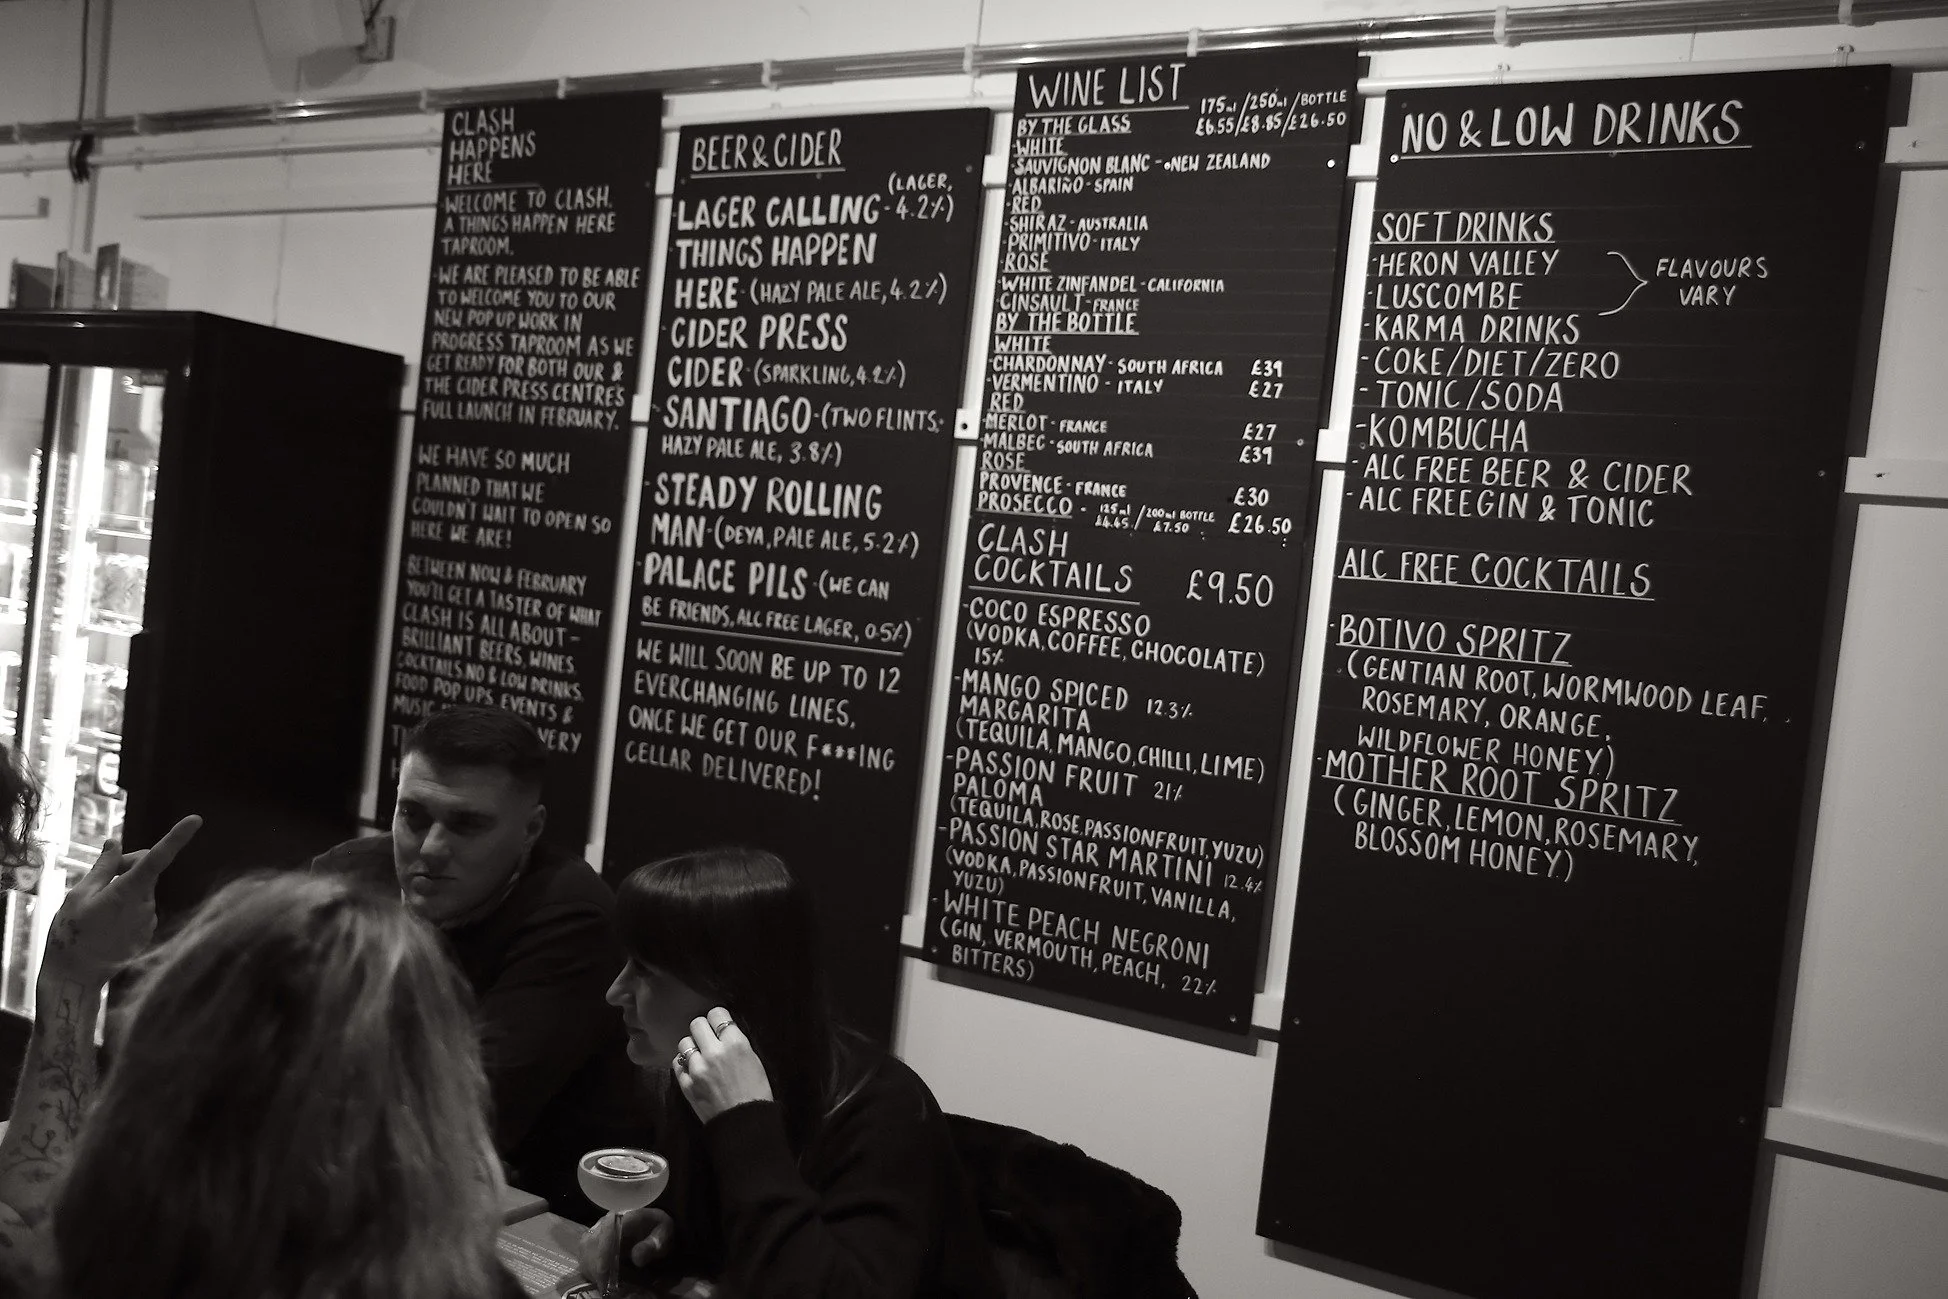 CLASH
HAPPENS
HERE
WELCOME TO CLASH.
A THINGS HAPPEN HERE
TAPROOM.
WE ARE PLEASED TO BE ABLE
TO WELCOME YOU TO OUR
NEW POP UP WORK IN
PROGRESS TAPROOM AS WE
GET READY FOR BOTH OUR &
THE CIDER PRESS CENTRE'S
FULL LAUNCH IN FEBRUARY.
WE HAVE SO MUCH
PLANNED THAT WE
COULDN'T WAIT TO OPEN SO
HERE WE ARE!
BETWEEN NOW & FEBRUARY
YOU'LL GET A TASTER OF WHAT
CLASH IS ALL ABOUT -
BRILLIANT BEERS, WINES,
COCKTAILS, NO & LOW DRINKS,
FOOD POP UPS, EVENTS &
MUSIC
VERY
BEER & CIDER
(LAGER,
LAGER CALLING - 4.2%)
THINGS HAPPEN
HERE - (HAZY PALE ALE, 4.2%)
CIDER PRESS
CIDER - (SPARKLING, 4.2%)
SANTIAGO - (TWO FLINTS,
HAZY PALE ALE, 3.8%)
STEADY ROLLING
MAN - (DEYA, PALE ALE, 5.2%)
PALACE PILS - (WE CAN
BE FRIENDS, ALC FREE LAGER, 0.5%)
WE WILL SOON BE UP TO 12
EVERCHANGING LINES,
ONCE WE GET OUR F***ING
CELLAR DELIVERED!
WINE LIST 175ml/250ml/BOTTLE
BY THE GLASS £6.55/£8.85/£26.50
WHITE
SAUVIGNON BLANC - NEW ZEALAND
ALBARIÑO - SPAIN
RED
SHIRAZ - AUSTRALIA
PRIMITIVO - ITALY
ROSE
WHITE ZINFANDEL - CALIFORNIA
CINSAULT - FRANCE
BY THE BOTTLE
WHITE
CHARDONNAY - SOUTH AFRICA £39
VERMENTINO - ITALY £27
RED
MERLOT - FRANCE £27
MALBEC - SOUTH AFRICA £39
ROSE
PROVENCE - FRANCE £30
PROSECCO - 125ml/200ml BOTTLE £26.50
£4.45/£7.50
CLASH
COCKTAILS £9.50
- COCO ESPRESSO
(VODKA, COFFEE, CHOCOLATE)
15%
- MANGO SPICED 12.3%
MARGARITA
(TEQUILA, MANGO, CHILLI, LIME)
- PASSION FRUIT 21%
PALOMA
(TEQUILA, ROSE, PASSIONFRUIT, YUZU)
- PASSION STAR MARTINI 12.4%
(VODKA, PASSIONFRUIT, VANILLA,
YUZU)
- WHITE PEACH NEGRONI
(GIN, VERMOUTH, PEACH, 22%
BITTERS)
NO & LOW DRINKS
SOFT DRINKS
- HERON VALLEY
- LUSCOMBE
FLAVOURS
VARY
- KARMA DRINKS
- COKE/DIET/ZERO
- TONIC/SODA
- KOMBUCHA
- ALC FREE BEER & CIDER
- ALC FREE GIN & TONIC
ALC FREE COCKTAILS
- BOTIVO SPRITZ
(GENTIAN ROOT, WORMWOOD LEAF,
ROSEMARY, ORANGE,
WILDFLOWER HONEY)
- MOTHER ROOT SPRITZ
(GINGER, LEMON, ROSEMARY,
BLOSSOM HONEY)